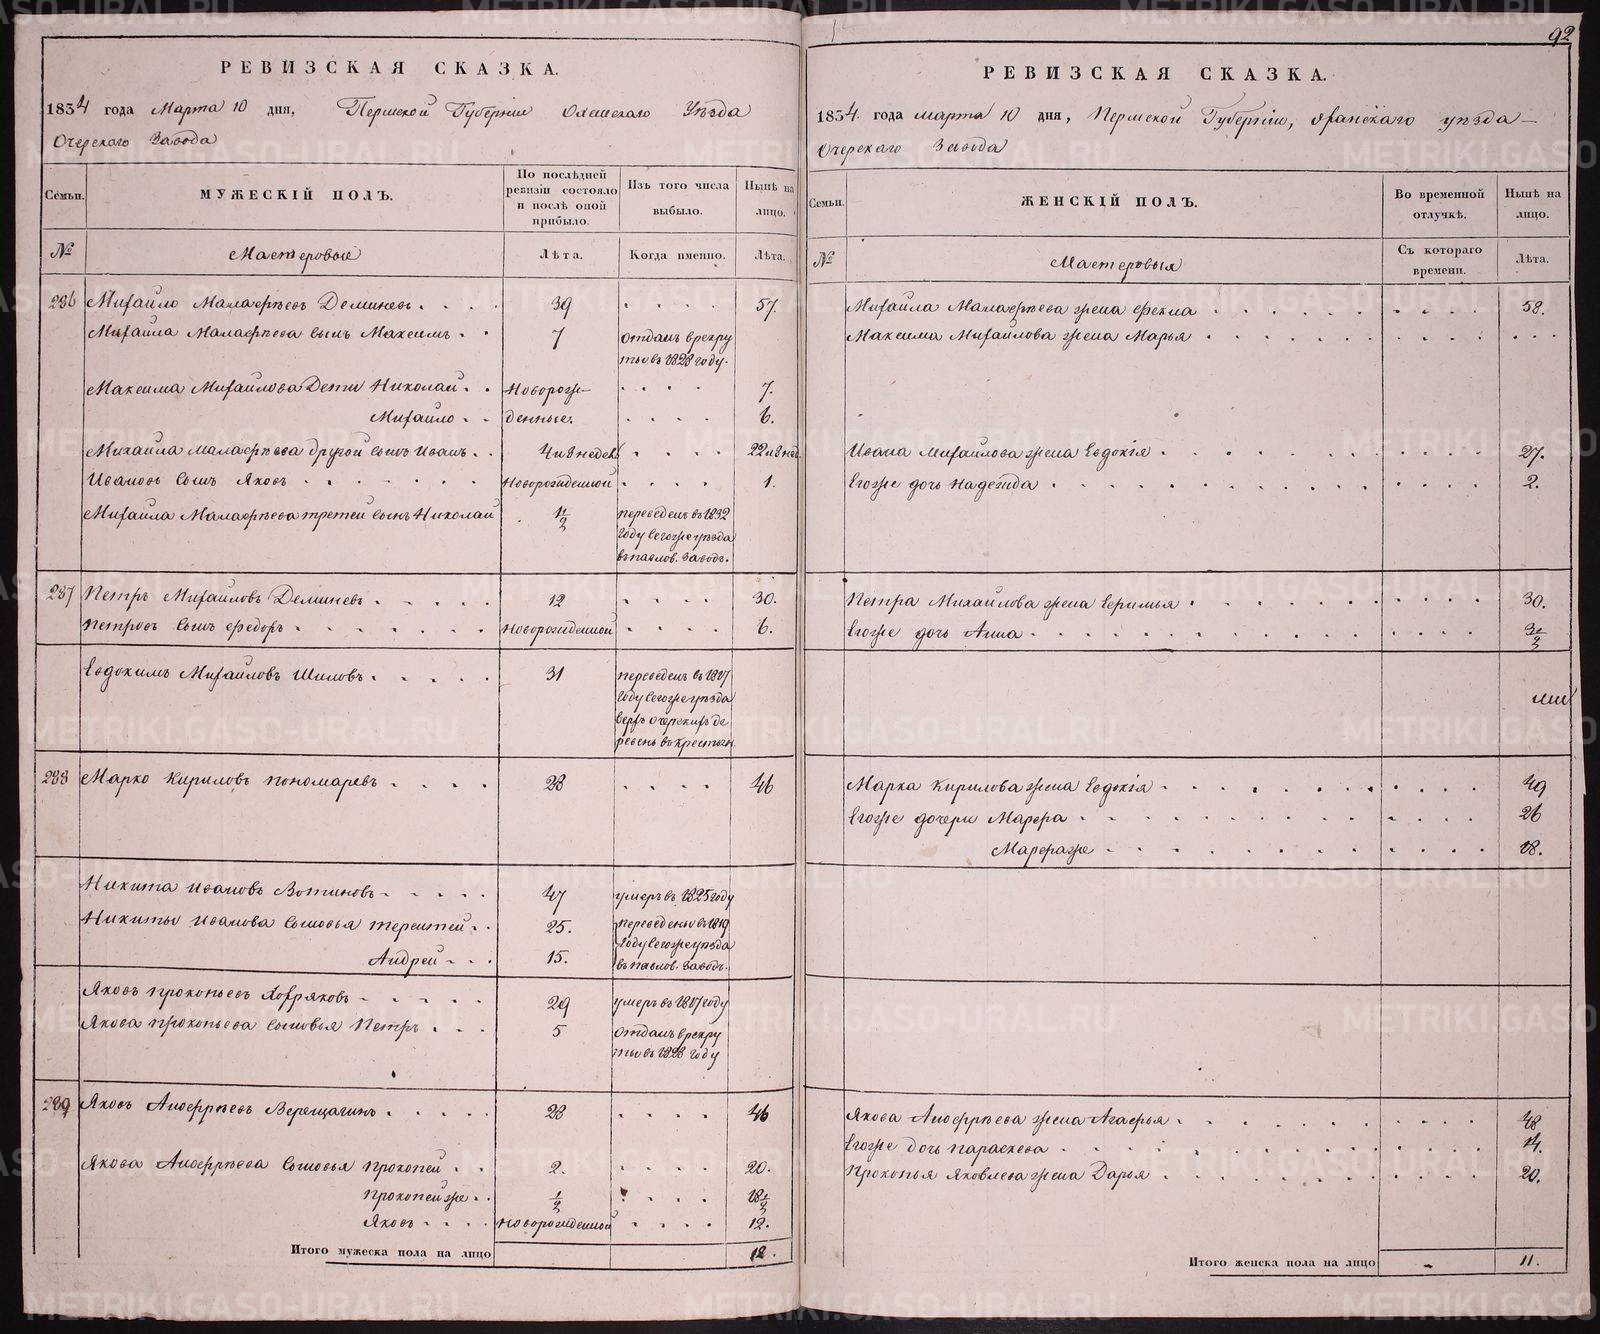 92
РЕВИЗСКАЯ СКАЗКА.
1834 года Марта 10 дня, Пермской Губернiи Оханскаго Уѣзда
Очерскаго Завода
Семьи. МУЖЕСКIЙ ПОЛЪ. По послѣдней ревизiи состояло и послѣ оной прибыло. Изъ того числа выбыло. Нынѣ на лицо.
№ Мастеровые Лѣта. Когда именно. Лѣта.
236 Михайло Малафѣевъ Деминевъ 39 57.
Михайла Малафѣева сынъ Максимъ 7 отданъ врекру
ты въ 1828 году.
Максима Михайлова Дети Николай Новорож- 7.
Михайло денные. 6.
Михаила малафѣева другой сынъ Иванъ 4 и 8 недел 22 и 8 нед
Ивановъ сынъ Яковъ новорожденной 1.
Михайла Малафѣева третей сынъ Николай 1/2 переведенъ въ 1832
году сегоже уѣзда
въ павлов. заводъ.
237 Петръ Михайловъ Деминевъ 12 30.
Петровъ сынъ Федоръ новорожденной 6.
Евдокимъ Михайловъ Шиловъ 31 переведенъ в 1817
году сегоже уѣзда
верхъ очерскихъ де
ревень въ крестьян
238 Марко Кириловъ пономаревъ 28 46
Никита Ивановъ Вотиновъ 47 умеръ въ 1825 году
Никиты Иванова сыновья терентей 25. переведены въ 1819
году сегоже уѣзда
Андрей 15. въ павлов. заводъ.
Яковъ прокопьевъ Хохряковъ 29 умеръ въ 1817 году
Якова прокопьева сыновья Петръ 5 отданъ врекру
ты въ 1828 году
239 Яковъ Анофрѣевъ Верещагинъ 28 46
Якова Анофрѣева сыновья прокопей 2. 20.
прокопей же 1/2 18 1/2
Яковъ новорожденной 12.
Итого мужеска пола на лицо 12.
РЕВИЗСКАЯ СКАЗКА.
1834 года марта 10 дня, Пермской Губернiи, оханскаго уѣзда
Очерскаго Завода
Семьи. ЖЕНСКIЙ ПОЛЪ. Во временной отлучкѣ. Нынѣ на лицо.
№ Мастеровыя Съ котораго времени. Лѣта.
Михайла Малафѣева жена Фекла 58.
Максима Михайлова жена Марья
Ивана Михайлова жена Евдокiя 27.
Егоже дочь надежда 2.
Петра Михайлова жена 30.
Егоже дочь Анна 3 1/2
Марка Кирилова жена Евдокiя 49
Егоже дочери Марфа 26
Марфаже 18.
Якова Анофрѣева жена Агафья 48
Егоже дочь параскева 14.
Прокопья Яковлева жена Дарья 20.
Итого женска пола на лицо 11.
METRIKI.GASO-URAL.RU